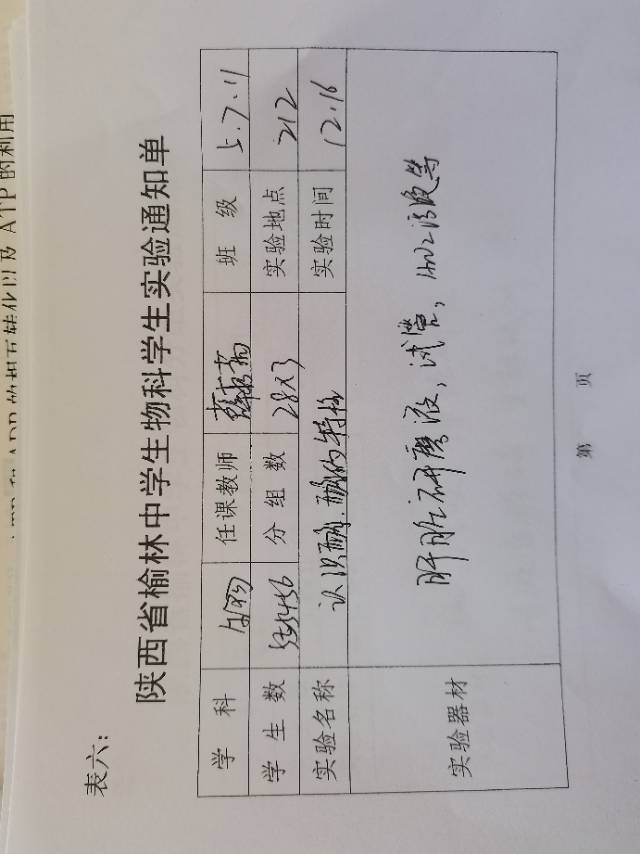 ATP 和 ADP 的相互转化以及 ATP 的利用
表六:
陕西省榆林中学生物科学生实验通知单
学 科 生物 任课教师 班 级 5.7.11
学 生 数 分 组 数 28×3 实验地点 212
实验名称 认识酶.酶的特性 实验时间 12.16
实验器材 肝脏研磨液,试管,H2O2溶液等
第 页